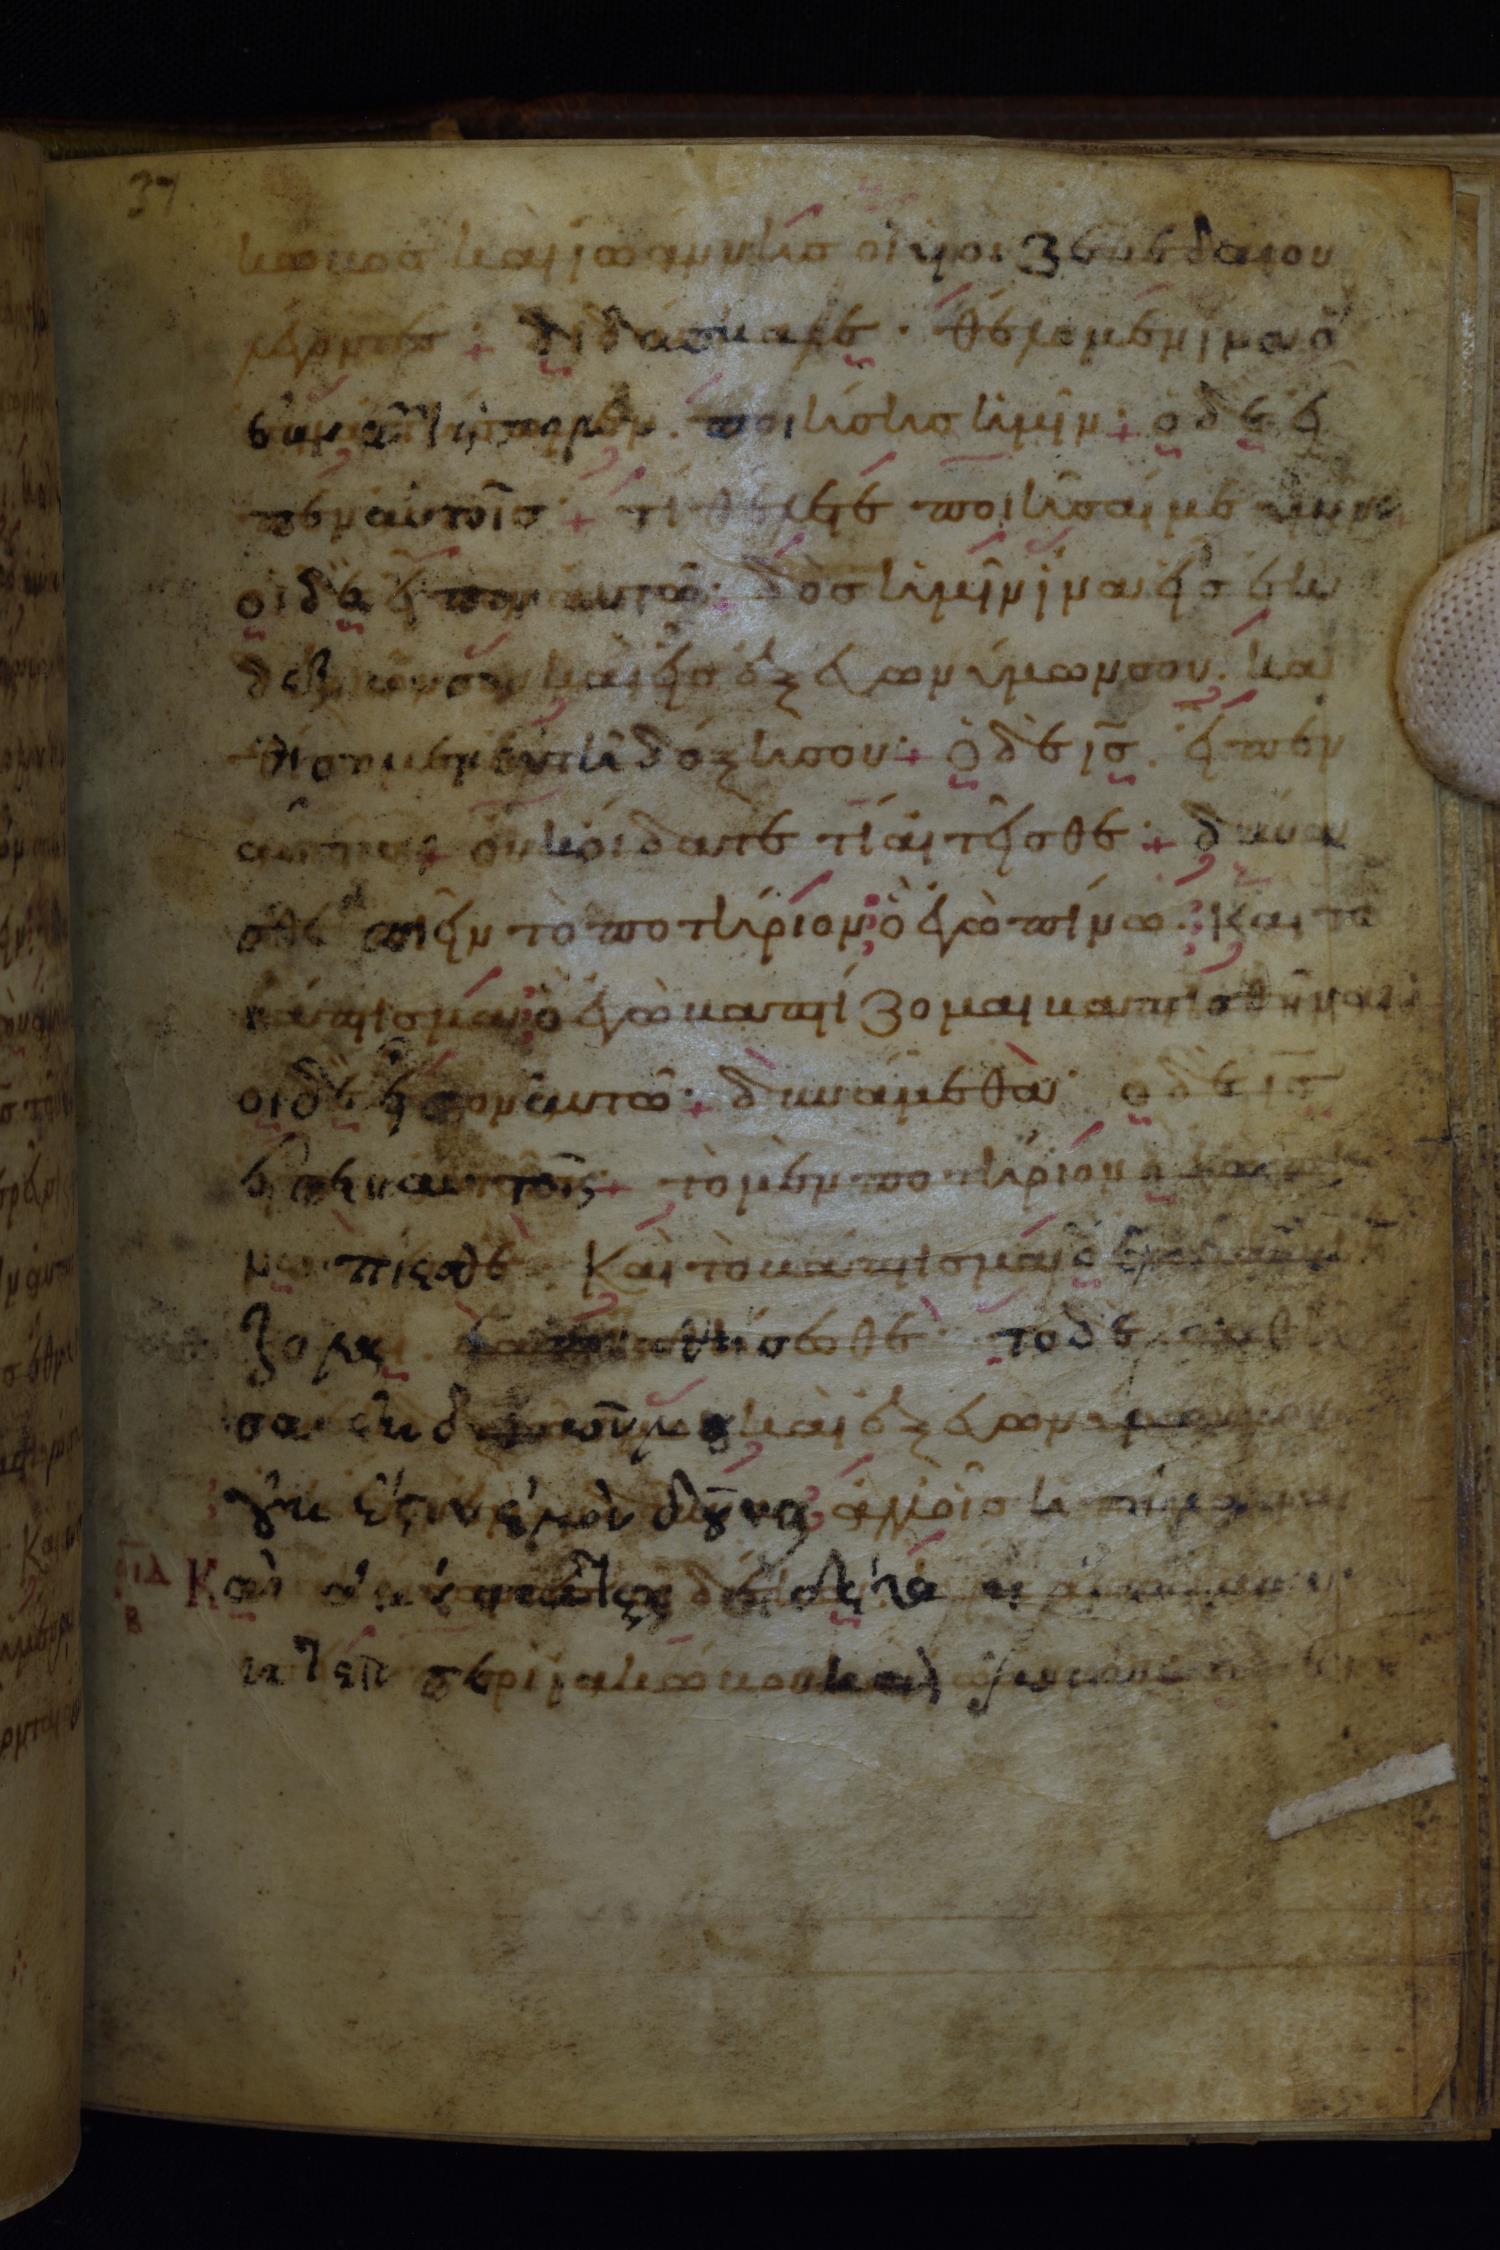 37
κωκοσ και ιωάννησ οι υιοι ζεβεδαιου
λέγοντεσ + διδάσκαλε · θέλομεν ίνα ὃ
εαν αιτησωμεν ποιήσησ ημῖν + ο δὲ εἶ
πεν αυτοῖσ + τί θέλετέ ποιῆσαί με υμιν +
οι δὲ εἶπον αυτῶ · δὸσ ημῖν ίνα εἷσ εκ
δεξιῶν σου και εἷσ εξ ευωνύμων σου · κα
θίσωμεν εν τῆ δόξη σου + ὁ δὲ ισ · εἶπεν
αυτοις + ουκ οίδατε τί αιτεῖσθε + δύνα
σθε πιεῖν τὸ ποτήριον ὃ εγὼ πίνω · και το
βάπτισμα ὃ εγὼ βαπτίζομαι βαπτισθῆναι
οι δὲ εἶπον αυτῶ + δυνάμεθα · ο δὲ ισ
εἶπεν αυτοῖς + τὸ μὲν ποτήριον ὃ
πίεσθε και τὸ βάπτισμα ὃ εγὼ βαπτί
ζομαι · βαπτισθήσεσθε · το δὲ καθί
σαι εκ δεξιῶν μου και εξ ευωνύμων μου
οὐκ ἔστιν ἐμὸν δοῦναι αλλ οἷσ ητοίμασται
ριδ Και ἀκούσαντες οι δέκα ήρξαντο αγανακτει
β
ν περι ιακώβου και ιωάννου